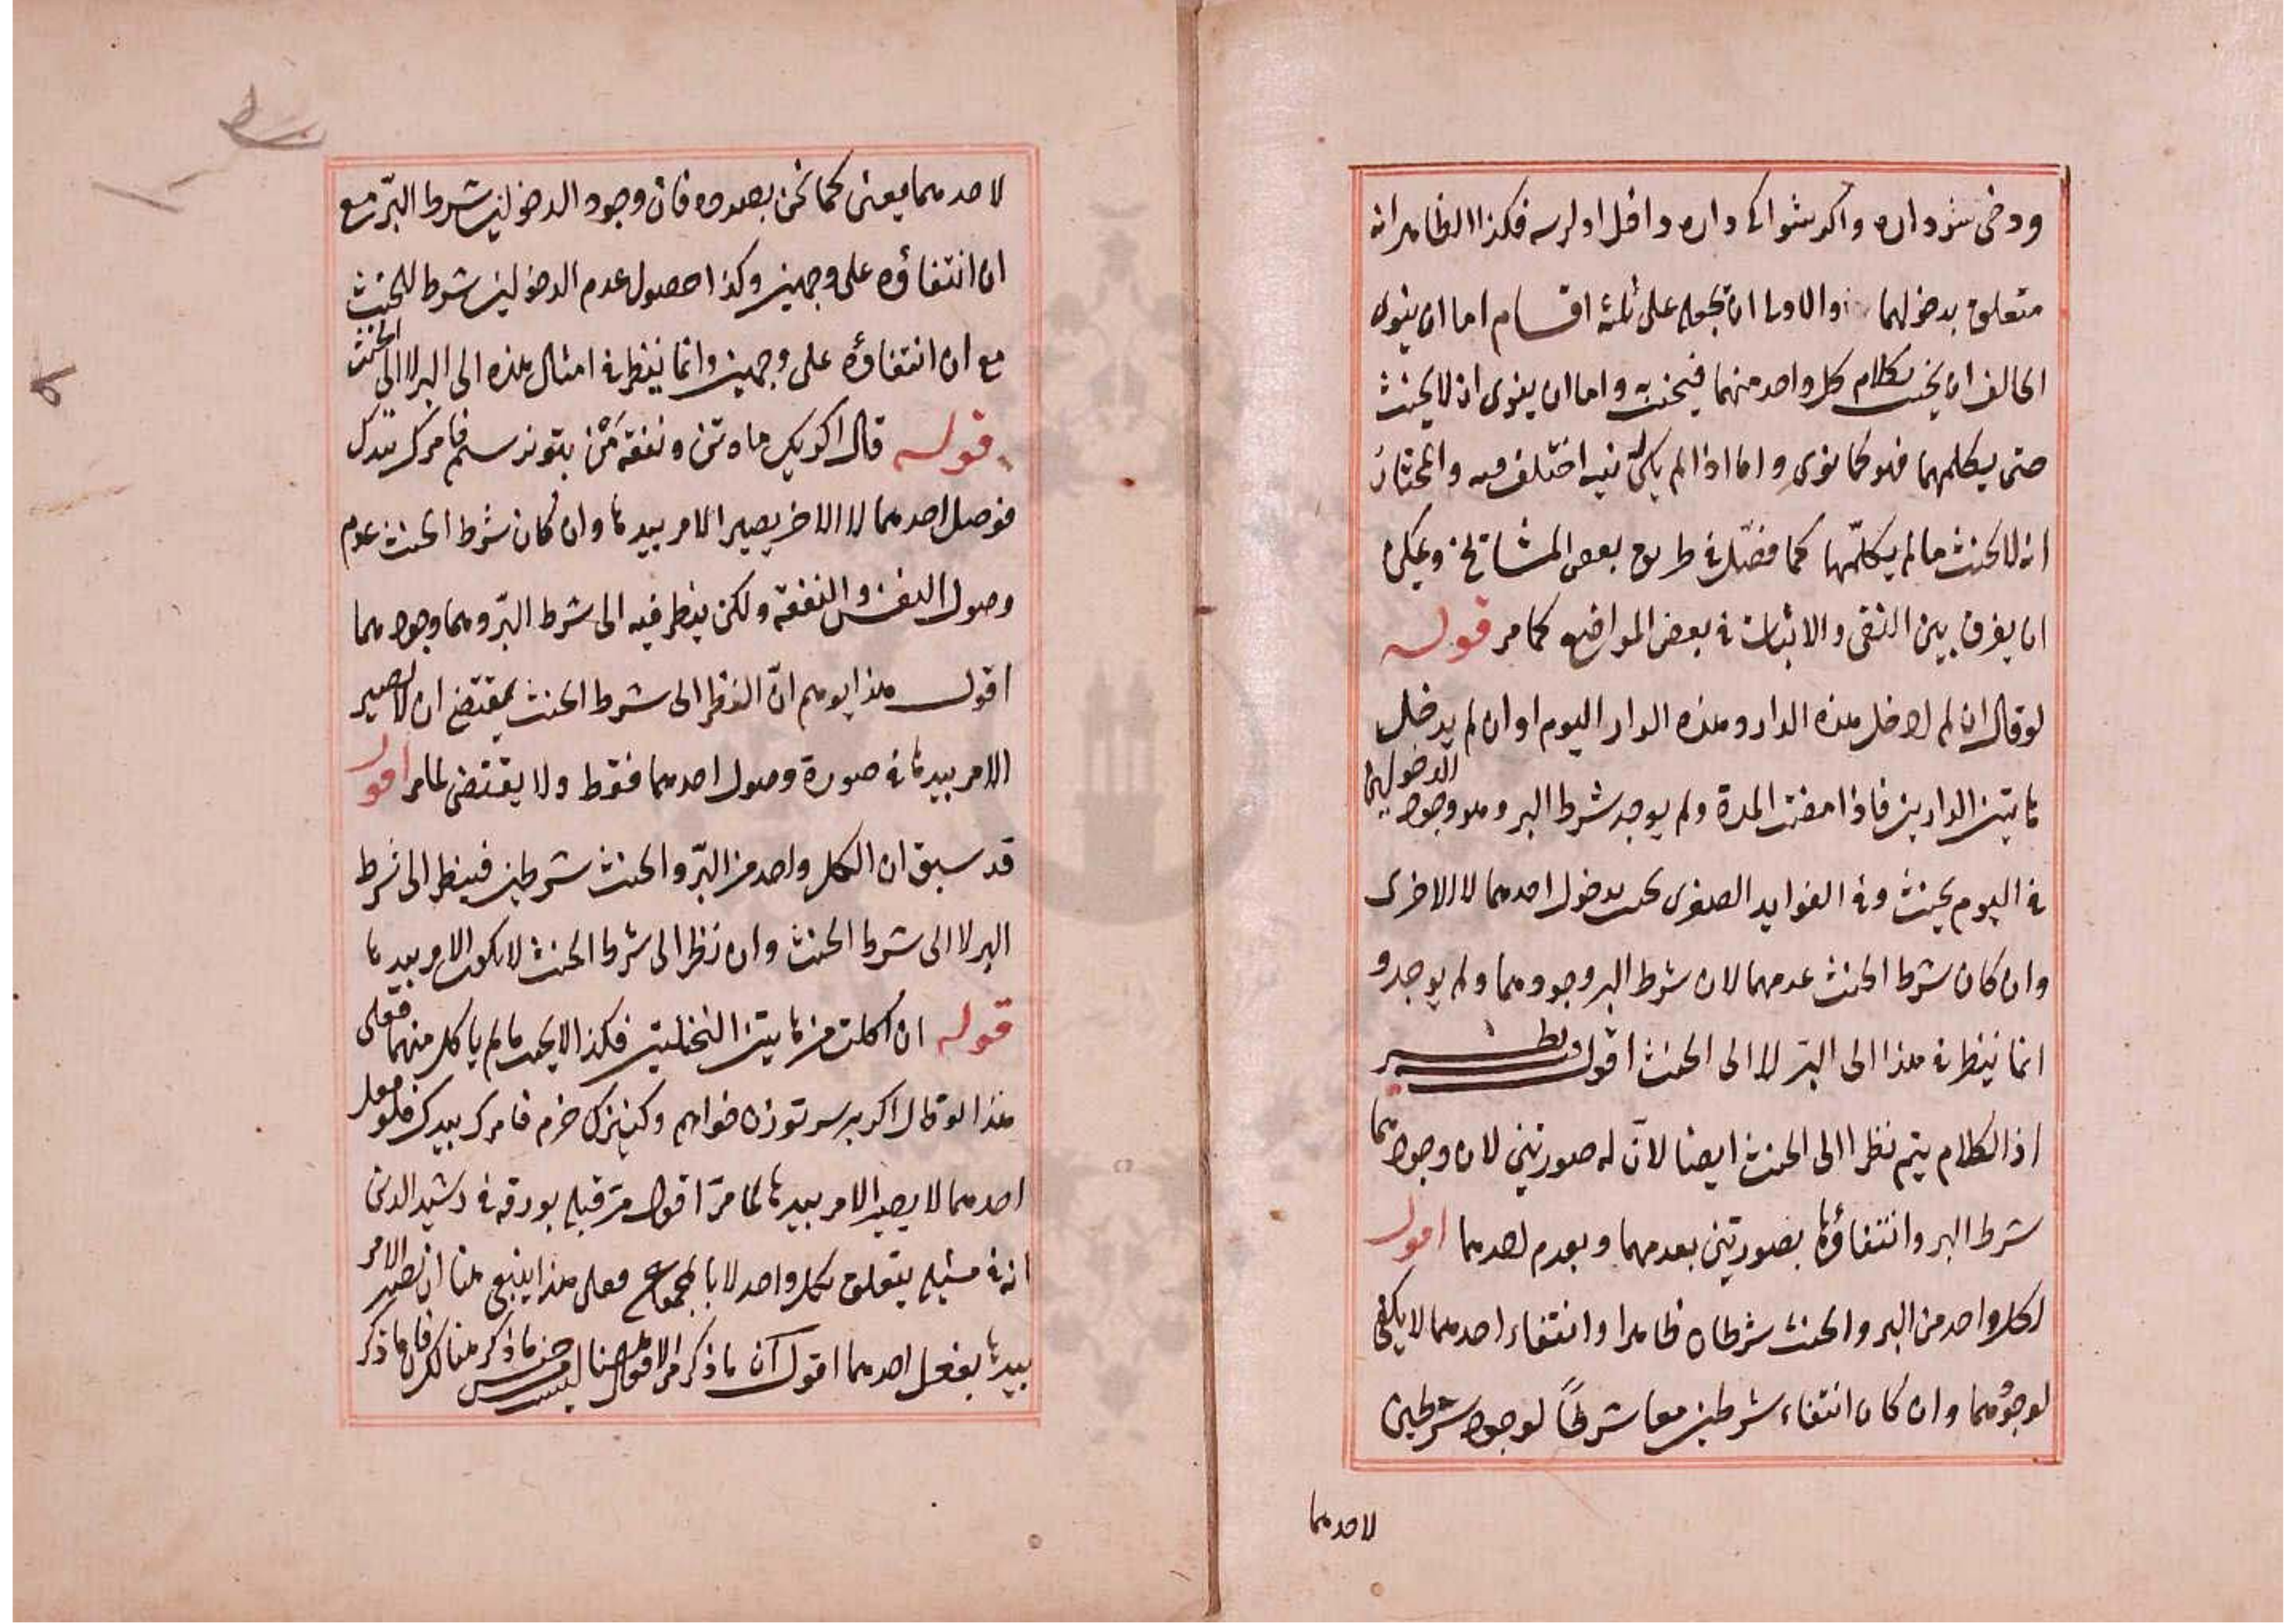 ودخی شو داره واکر شو ایکی داره داخل اولرسه فکذا الظاهر انه
متعلق بدخولهما والاولى ان تجعله على ثلثة اقسام اما ان ينوى
الحالف ان يحنث بكلام كل واحد منهما فيحنث واما ان ينوى ان لا يحنث
حتى يكلمهما فهو كما نوى واما اذا لم يكن نية اختلف فيه والمختار
انه لا يحنث ما لم يكلمهما كما فصل في طريق بعض المشايخ ويمكن
ان يفرق بين النفى والاثبات في بعض المواضع كما مر قوله
لو قال ان لم ادخل هذه الدار وهذه الدار اليوم او ان لم يدخل
هاتين الدارين فاذا مضت المدة ولم يوجد شرط البر وهو وجود الدخولين
في اليوم يحنث وفي الفوايد الصغرى يحنث بدخول احدهما لا الاخرى
وان كان شرط الحنث عدمهما لان شرط البر وجودهما ولم يوجد و
انما ينظر في هذا الى البر لا الى الحنث اقول
اذ الكلام يتم نظرا الى الحنث ايضا لان له صورتين لان وجودهما
شرط البر وانتفاؤها بصورتين بعدمهما وبعدم احدهما اقول
لكل واحد من البر والحنث شرطان ظاهرا وانتفاء احدهما لا يكفى
لوجودهما وان كان انتفاء شرطين معا شرطا لوجود شرطين
لاحدهما
لاحدهما يعنى كما نحن بصدده فان وجود الدخولين شرط البر مع
ان انتفاؤه على وجهين وكذا حصول عدم الدخولين شرط للحنث
مع ان انتفاؤه على وجهين وانما ينظر في امثال هذه الى البر لا الى الحنث
قوله قال اکر یک ماه تن ونفقه من بتو نرسم فامرک بیدک
فوصل احدهما لا الاخر يصير الامر بيدها وان كان شرط الحنث عدم
وصول النفس والنفقة ولكن ينظر فيه الى شرط البر وهما وجودهما
اقول هذا يوهم ان النظر الى شرط الحنث يقتضى ان لا يصير
الامر بيدها في صورة وصول احدهما فقط ولا يقتضى لما مر اقول
قد سبق ان لكل واحد من البر والحنث شرطين فينظر الى شرط
البر لا الى شرط الحنث وان نظر الى شرط الحنث لا يكون الامر بيدها
قوله ان اكلت من هاتين النخلتين فكذا لا يحنث ما لم ياكل منهما فعلى
هذا لو قال اکر بر سر تو زن خواهم وکنیزک خرم فامرک بیدک فلو فعل
احدهما لا يصير الامر بيدها لما مر اقول مر قبله بورقة في رشيد الدين
انه في مثله يتعلق بكل واحد لا بالمجموع فعلى هذا ينبغى هنا ان يصير الامر
بيدها بفعل احدهما اقول ان ما ذكر من الاقوال هنا ليس من جنس ما ذكر هنالك فان ما ذكر